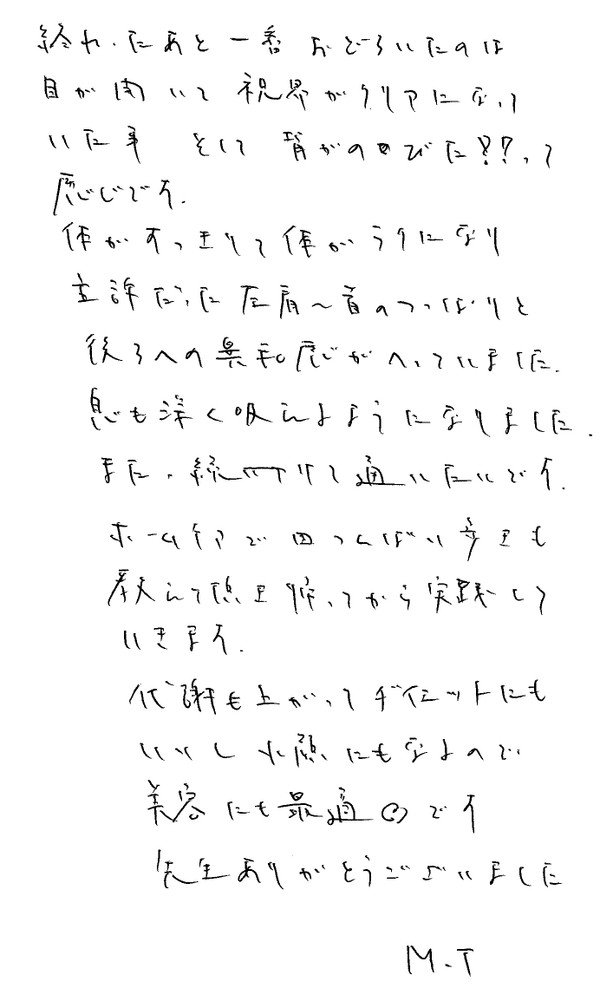 終わったあと一番おどろいたのは
目が開いて視界がクリアになって
いた事 そして背がのびた??って
感じです.
体がすっきりして体がラクになり
主訴だった左肩～首のつっぱりと
後ろへの異和感がへっていました.
息も深く吸えるようになりました.
また、続けて通いたいです.
ホームケアで四つんばい歩きも
教えて頂き帰ってから実践して
いきます.
代謝も上がってダイエットにも
いいし小顔にもなるので
美容にも最適です
先生ありがとうございました
M.T